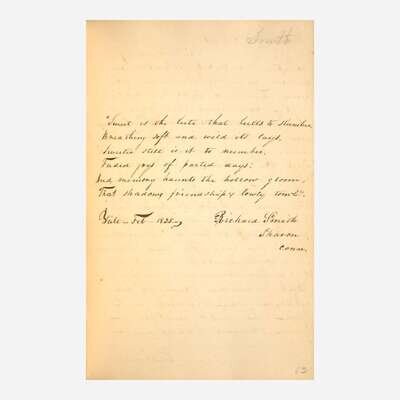 Smith
"Sweet is the lute that lulls to slumber
Breathing soft and wild its lays.
Sweeter still is it to number,
Faded joys of parted days:
And memory haunts the hollow gloom,
That shadows friendship's lowly tomb".
Yale – Feb – 1828.
Richard Smith
Sharon
Conn.